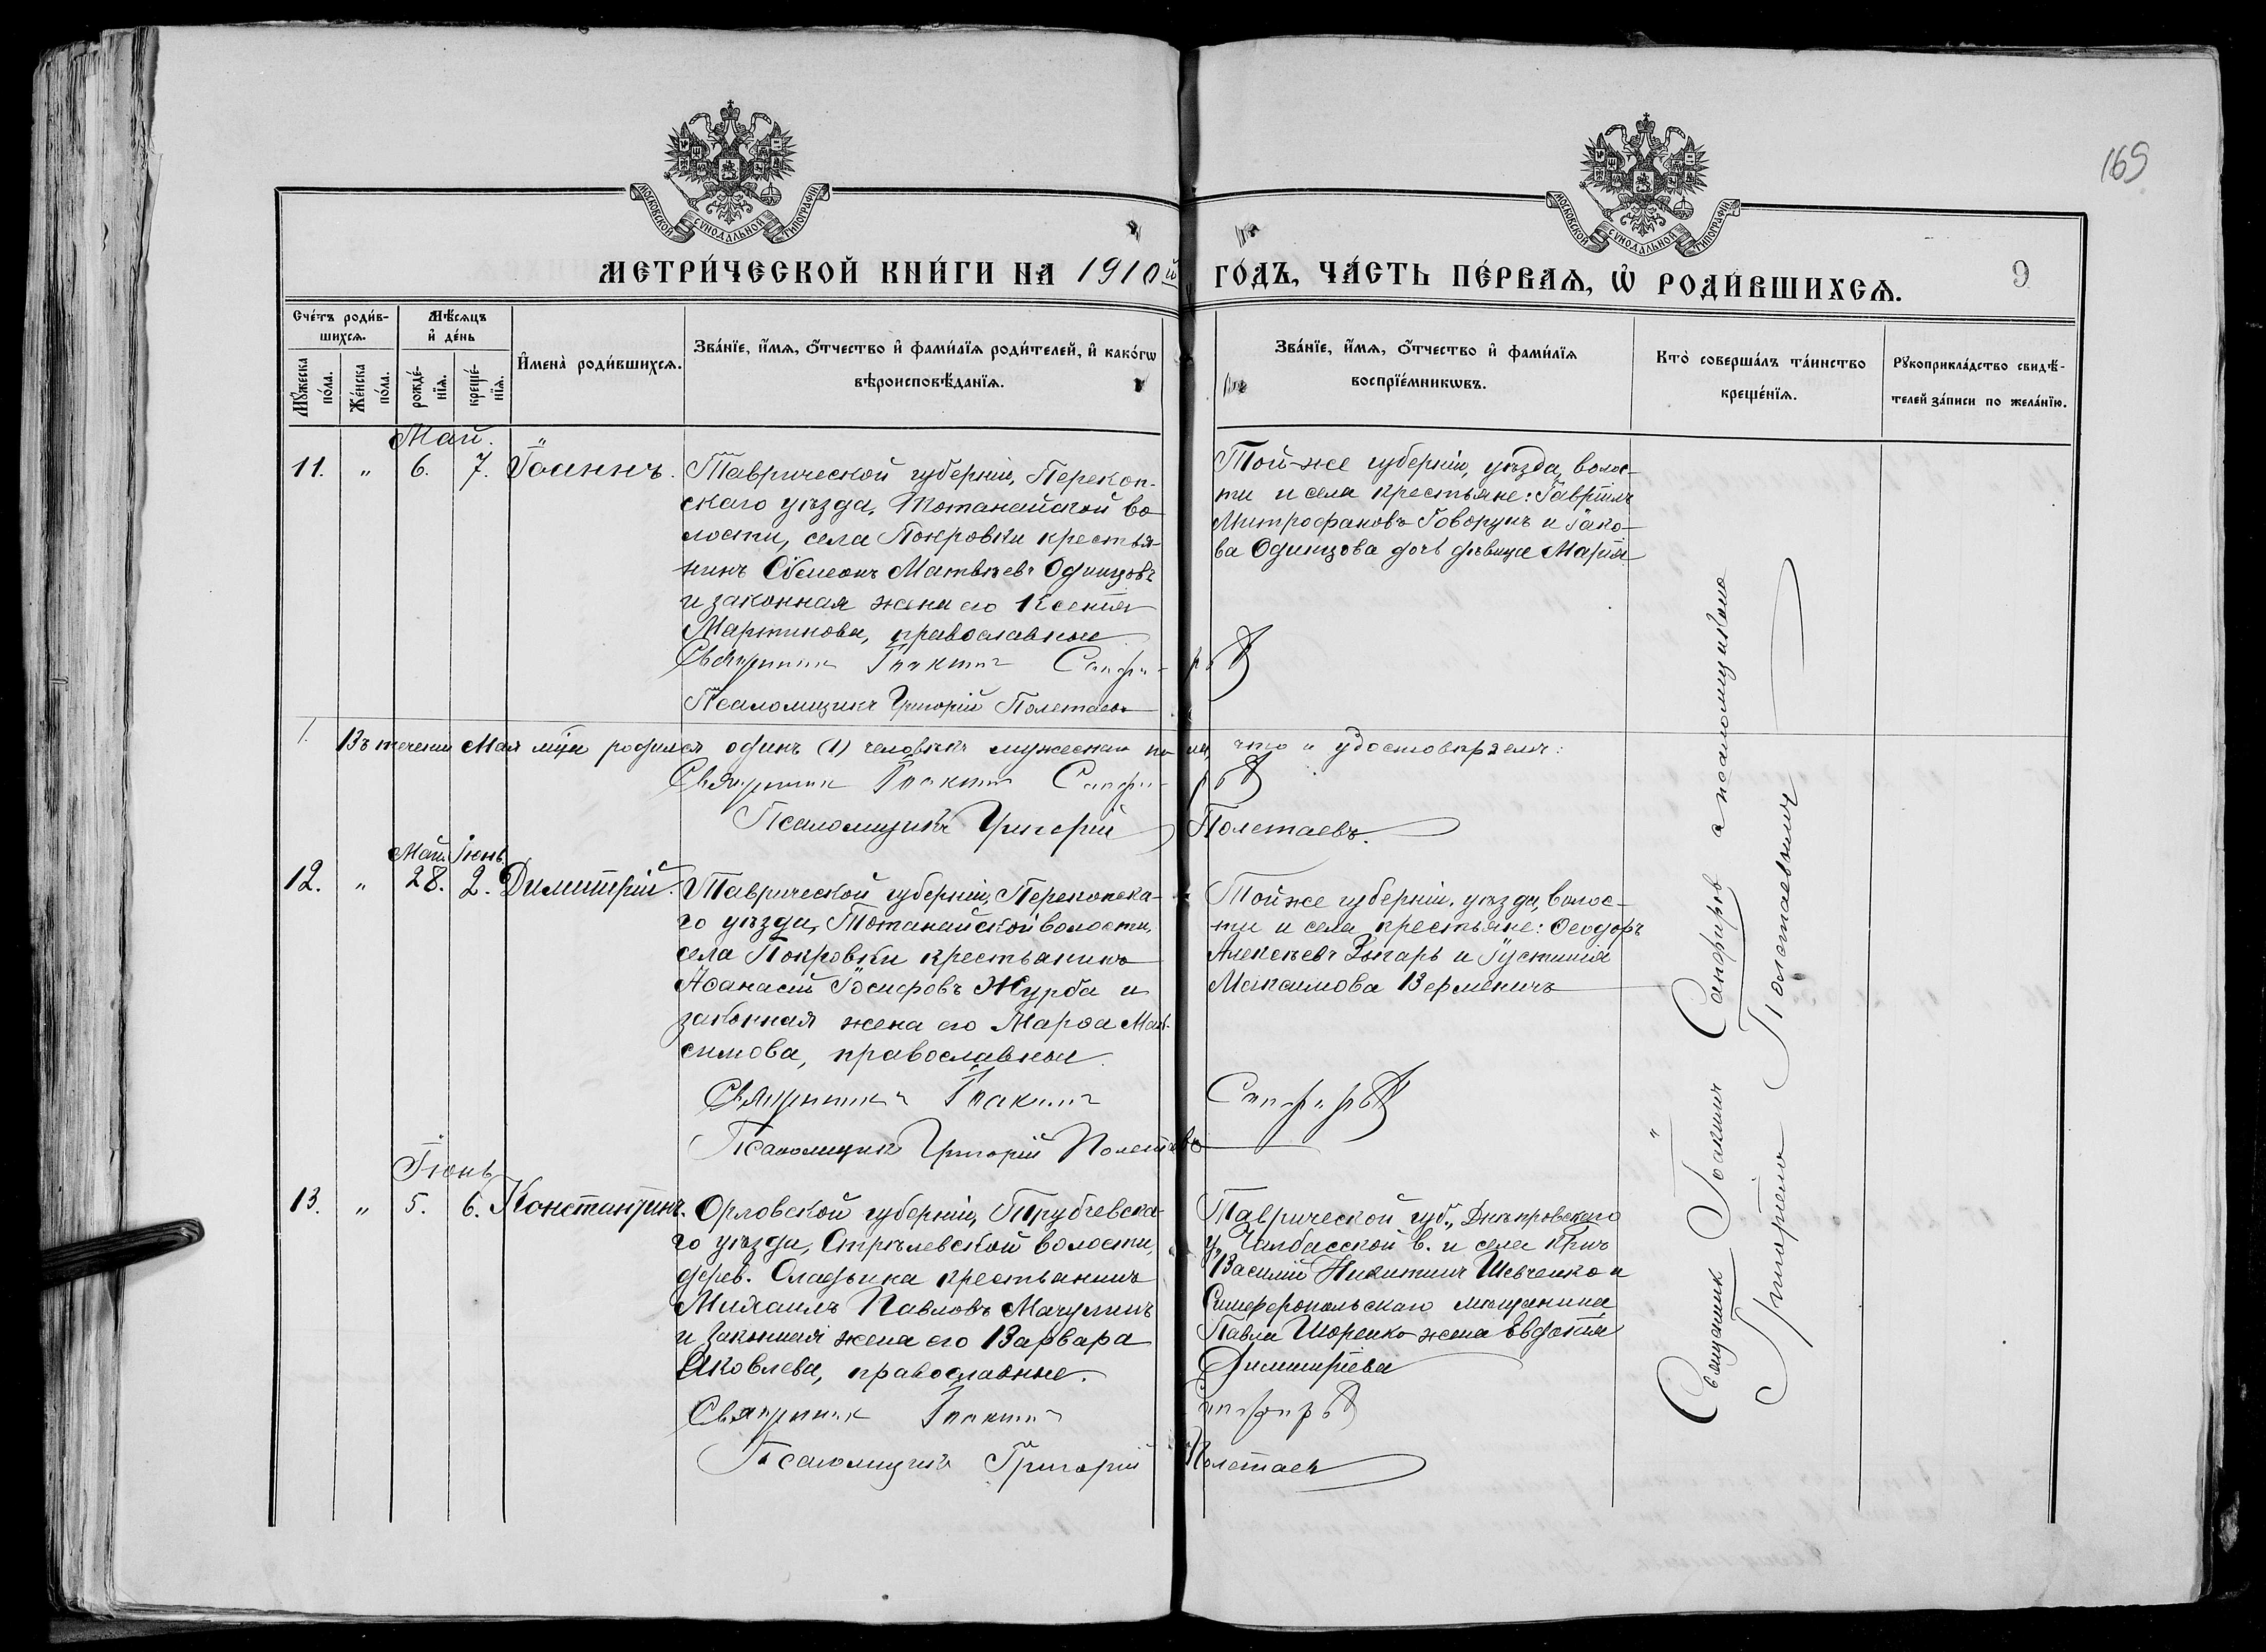 169
МОСКОВСКОЙ СУНОДАЛЬНОЙ ТИПОГРАФІИ
МОСКОВСКОЙ СУНОДАЛЬНОЙ ТИПОГРАФІИ
МЕТРИ́ЧЕСКОЙ КНИ́ГИ НА 1910й
ГО́ДЪ, ЧА́СТЬ ПЕ́РВАѦ, Ѡ҆ РОДИ́ВШИХСѦ.
9
Сче́тъ роди́в-
шихсѧ.
Мѣ́сѧцъ
и҆ де́нь
Мꙋ́жеска
по́ла.
Же́нска
по́ла.
рожде́-
нїѧ.
креще́-
нїѧ.
И҆мена̀ роди́вшихсѧ.
Зва́нїе, и҆́мѧ, ѻ҆́тчество и҆ фами́лїѧ роди́телей, и҆ како́гѡ
вѣроисповѣ́данїѧ.
Зва́нїе, и҆́мѧ, ѻ҆́тчество и҆ фами́лїѧ
воспрїе́мникѡвъ.
Кто̀ соверша́лъ та́инство
креще́нїѧ.
Рꙋкоприкла́дство свидѣ́-
телей за́писи по жела́нїю.
Май.
11. " 6. 7. Іоаннъ.
Таврической губерніи, Перекоп-
скаго уѣзда, Тотанайской во-
лости, села Покровки крестья-
нинъ Сѵмеонъ Матвѣевъ Одинцовъ
и законная жена его Ксенія
Мартинова, православные
Священникъ Іоакимъ Сапфировъ
Псаломщикъ Григорій Полетаевъ
Той-же губерніи, уѣзда, волос-
ти и села крестьяне: Гавріилъ
Митрофановъ Говорунъ и Іако-
ва Одинцова дочь дѣвица Марія
1. Въ теченіи Мая м̃ца родился одинъ (1) человѣкъ мужескаго пола, что и удостовѣряемъ:
Священникъ Іоакимъ Сапфировъ
Псаломщикъ Григорій Полетаевъ.
Май. Іюнь.
12. " 28. 2. Димитрій.
Таврической губерніи, Перекопска-
го уѣзда, Тотанайской волости,
села Покровки крестьянинъ
Аѳанасій Іосифовъ Журба и
законная жена его Марѳа Мак-
симова, православные
Священникъ Іоакимъ Сапфировъ
Псаломщикъ Григорій Полетаевъ
Той же губерніи, уѣзда, волос-
ти и села крестьяне: Ѳеодоръ
Алексѣевъ Зыгарь и Іустинія
Максимова Верменичъ
Іюнь
13. " 5. 6. Константинъ.
Орловской губерніи, Трубчевска-
го уѣзда, Стрѣлевской волости,
дерев. Оладьина крестьянинъ
Михаилъ Павловъ Мачулинъ
и законная жена его Варвара
Яковлева, православные.
Священникъ Іоакимъ Сапфировъ
Псаломщикъ Григорій Полетаевъ
Таврической губ., Днѣпровскаго
у., Чалбасской в. и села крнъ
Василій Никитинъ Шевченко и
Симферопольскаго мѣщанина
Павла Шоренко жена Евдокія
Димитріева
Священникъ Іоакимъ Сапфировъ и псаломщикомъ
Григоріемъ Полетаевымъ